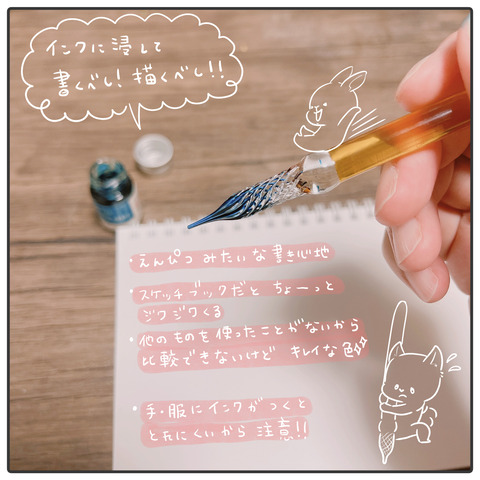 インクに浸して
書くべし！描くべし!!
・えんぴつ みたいな書き心地
・スケッチブックだと ちょーっと
ジワジワくる
・他のものを使ったことがないから
比較できないけど キレイな色
・手・服にインクがつくと
とれにくいから 注意!!